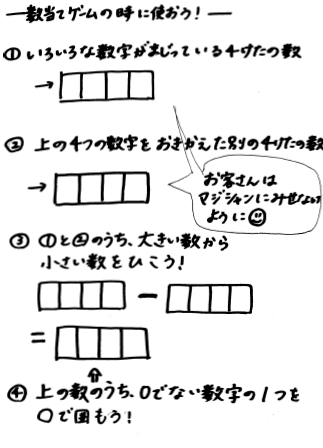 数当てゲームの時に使おう！
① いろいろな数字がまじっている4けたの数
→
② 上の4つの数字をおきかえた別の4けたの数
→
お客さんは
マジシャンにみせない
ように
③ ①と②のうち、大きい数から
小さい数をひこう！
−
=
⇧
④ 上の数のうち、0でない数字の1つを
○で囲もう！